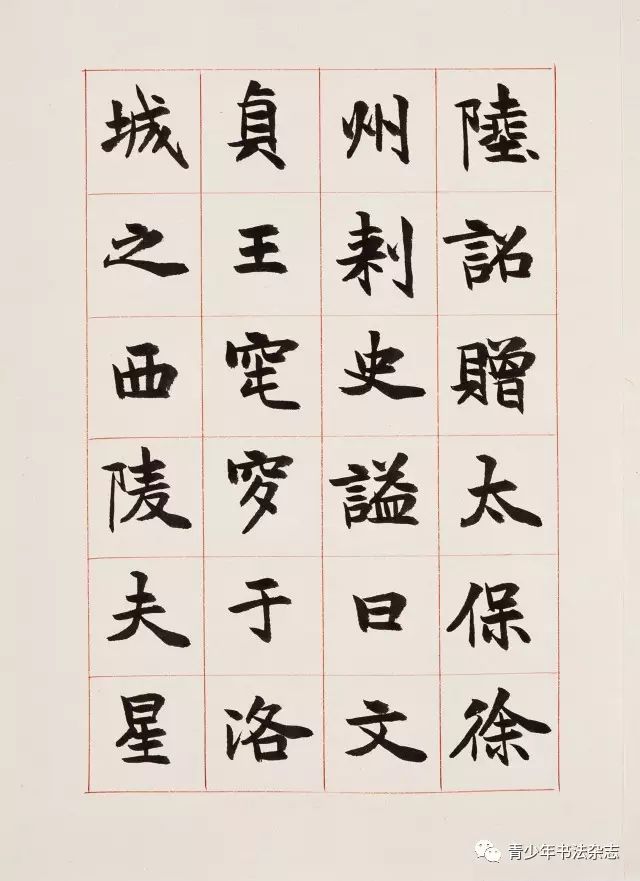 陸詔贈太保徐
州刺史謚曰文
貞王窀穸于洛
城之西陵夫星
青少年书法杂志